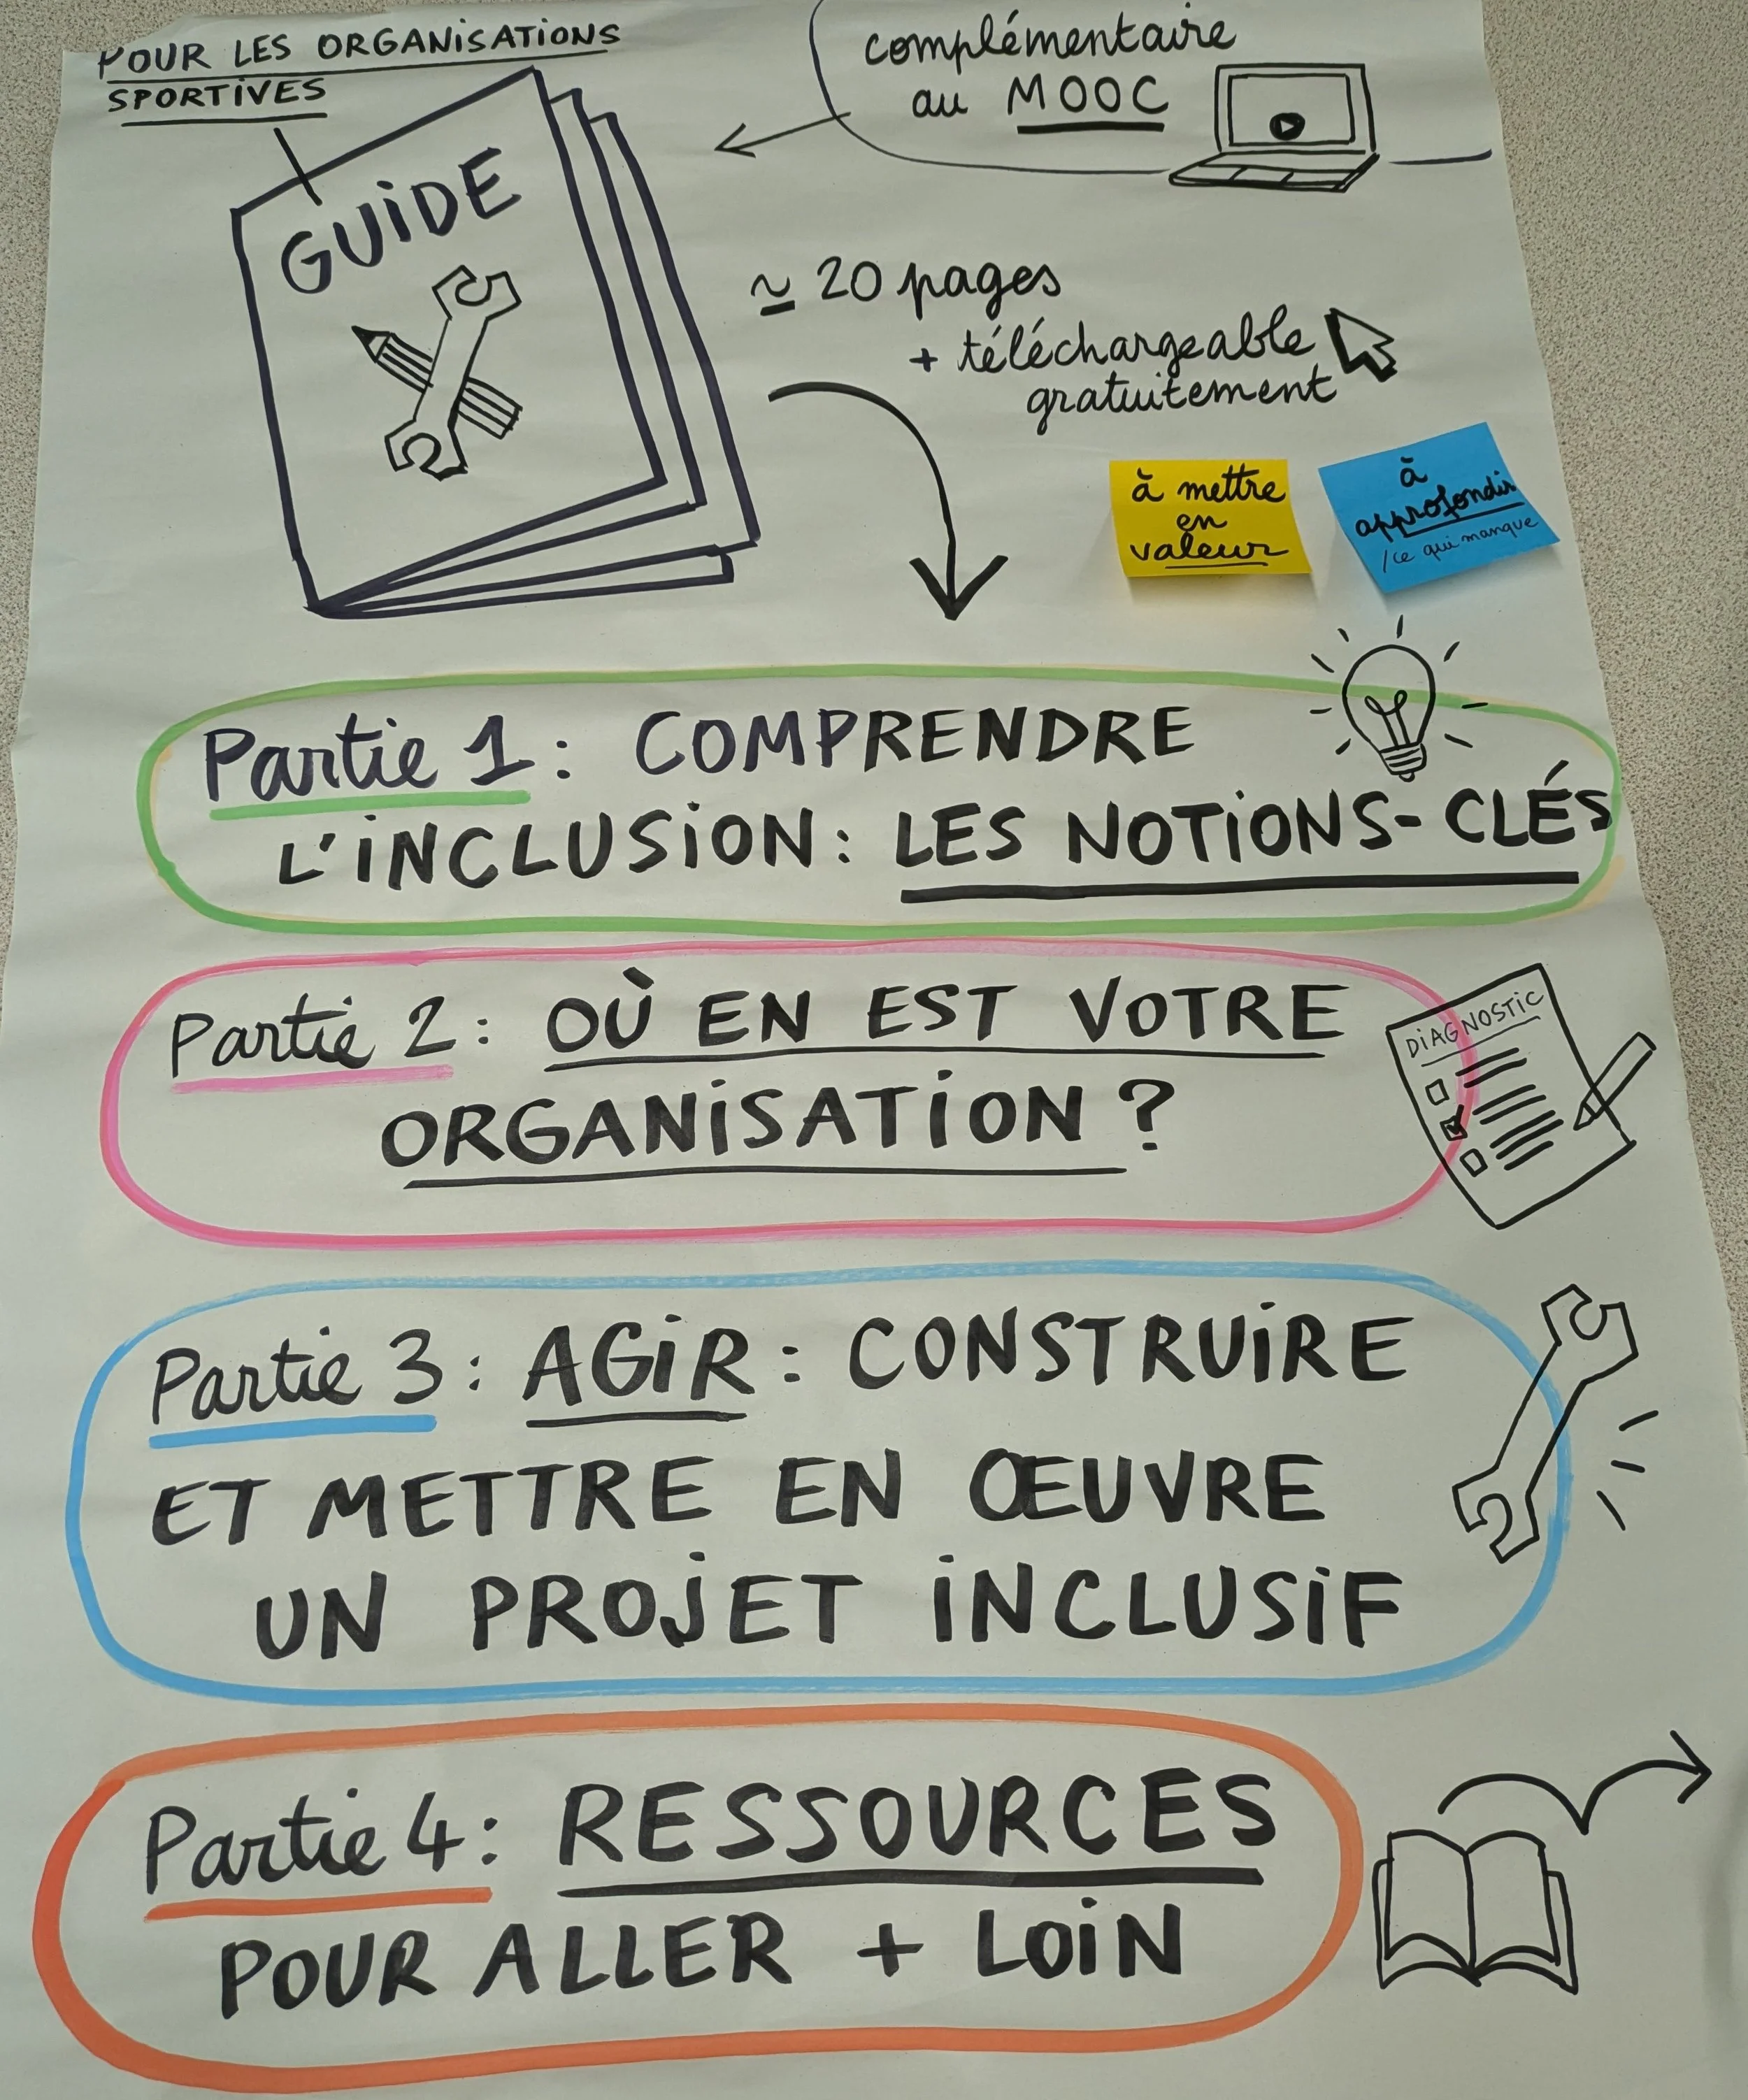 POUR LES ORGANISATIONS
SPORTIVES
GUIDE
complémentaire
au MOOC
≃ 20 pages
+ téléchargeable
gratuitement
à mettre
en
valeur
à
approfondir
/ce qui manque
Partie 1 : COMPRENDRE
L'INCLUSION : LES NOTIONS-CLÉS
Partie 2 : OÙ EN EST VOTRE
ORGANISATION ?
DIAGNOSTIC
Partie 3 : AGIR : CONSTRUIRE
ET METTRE EN ŒUVRE
UN PROJET INCLUSIF
Partie 4 : RESSOURCES
POUR ALLER + LOIN